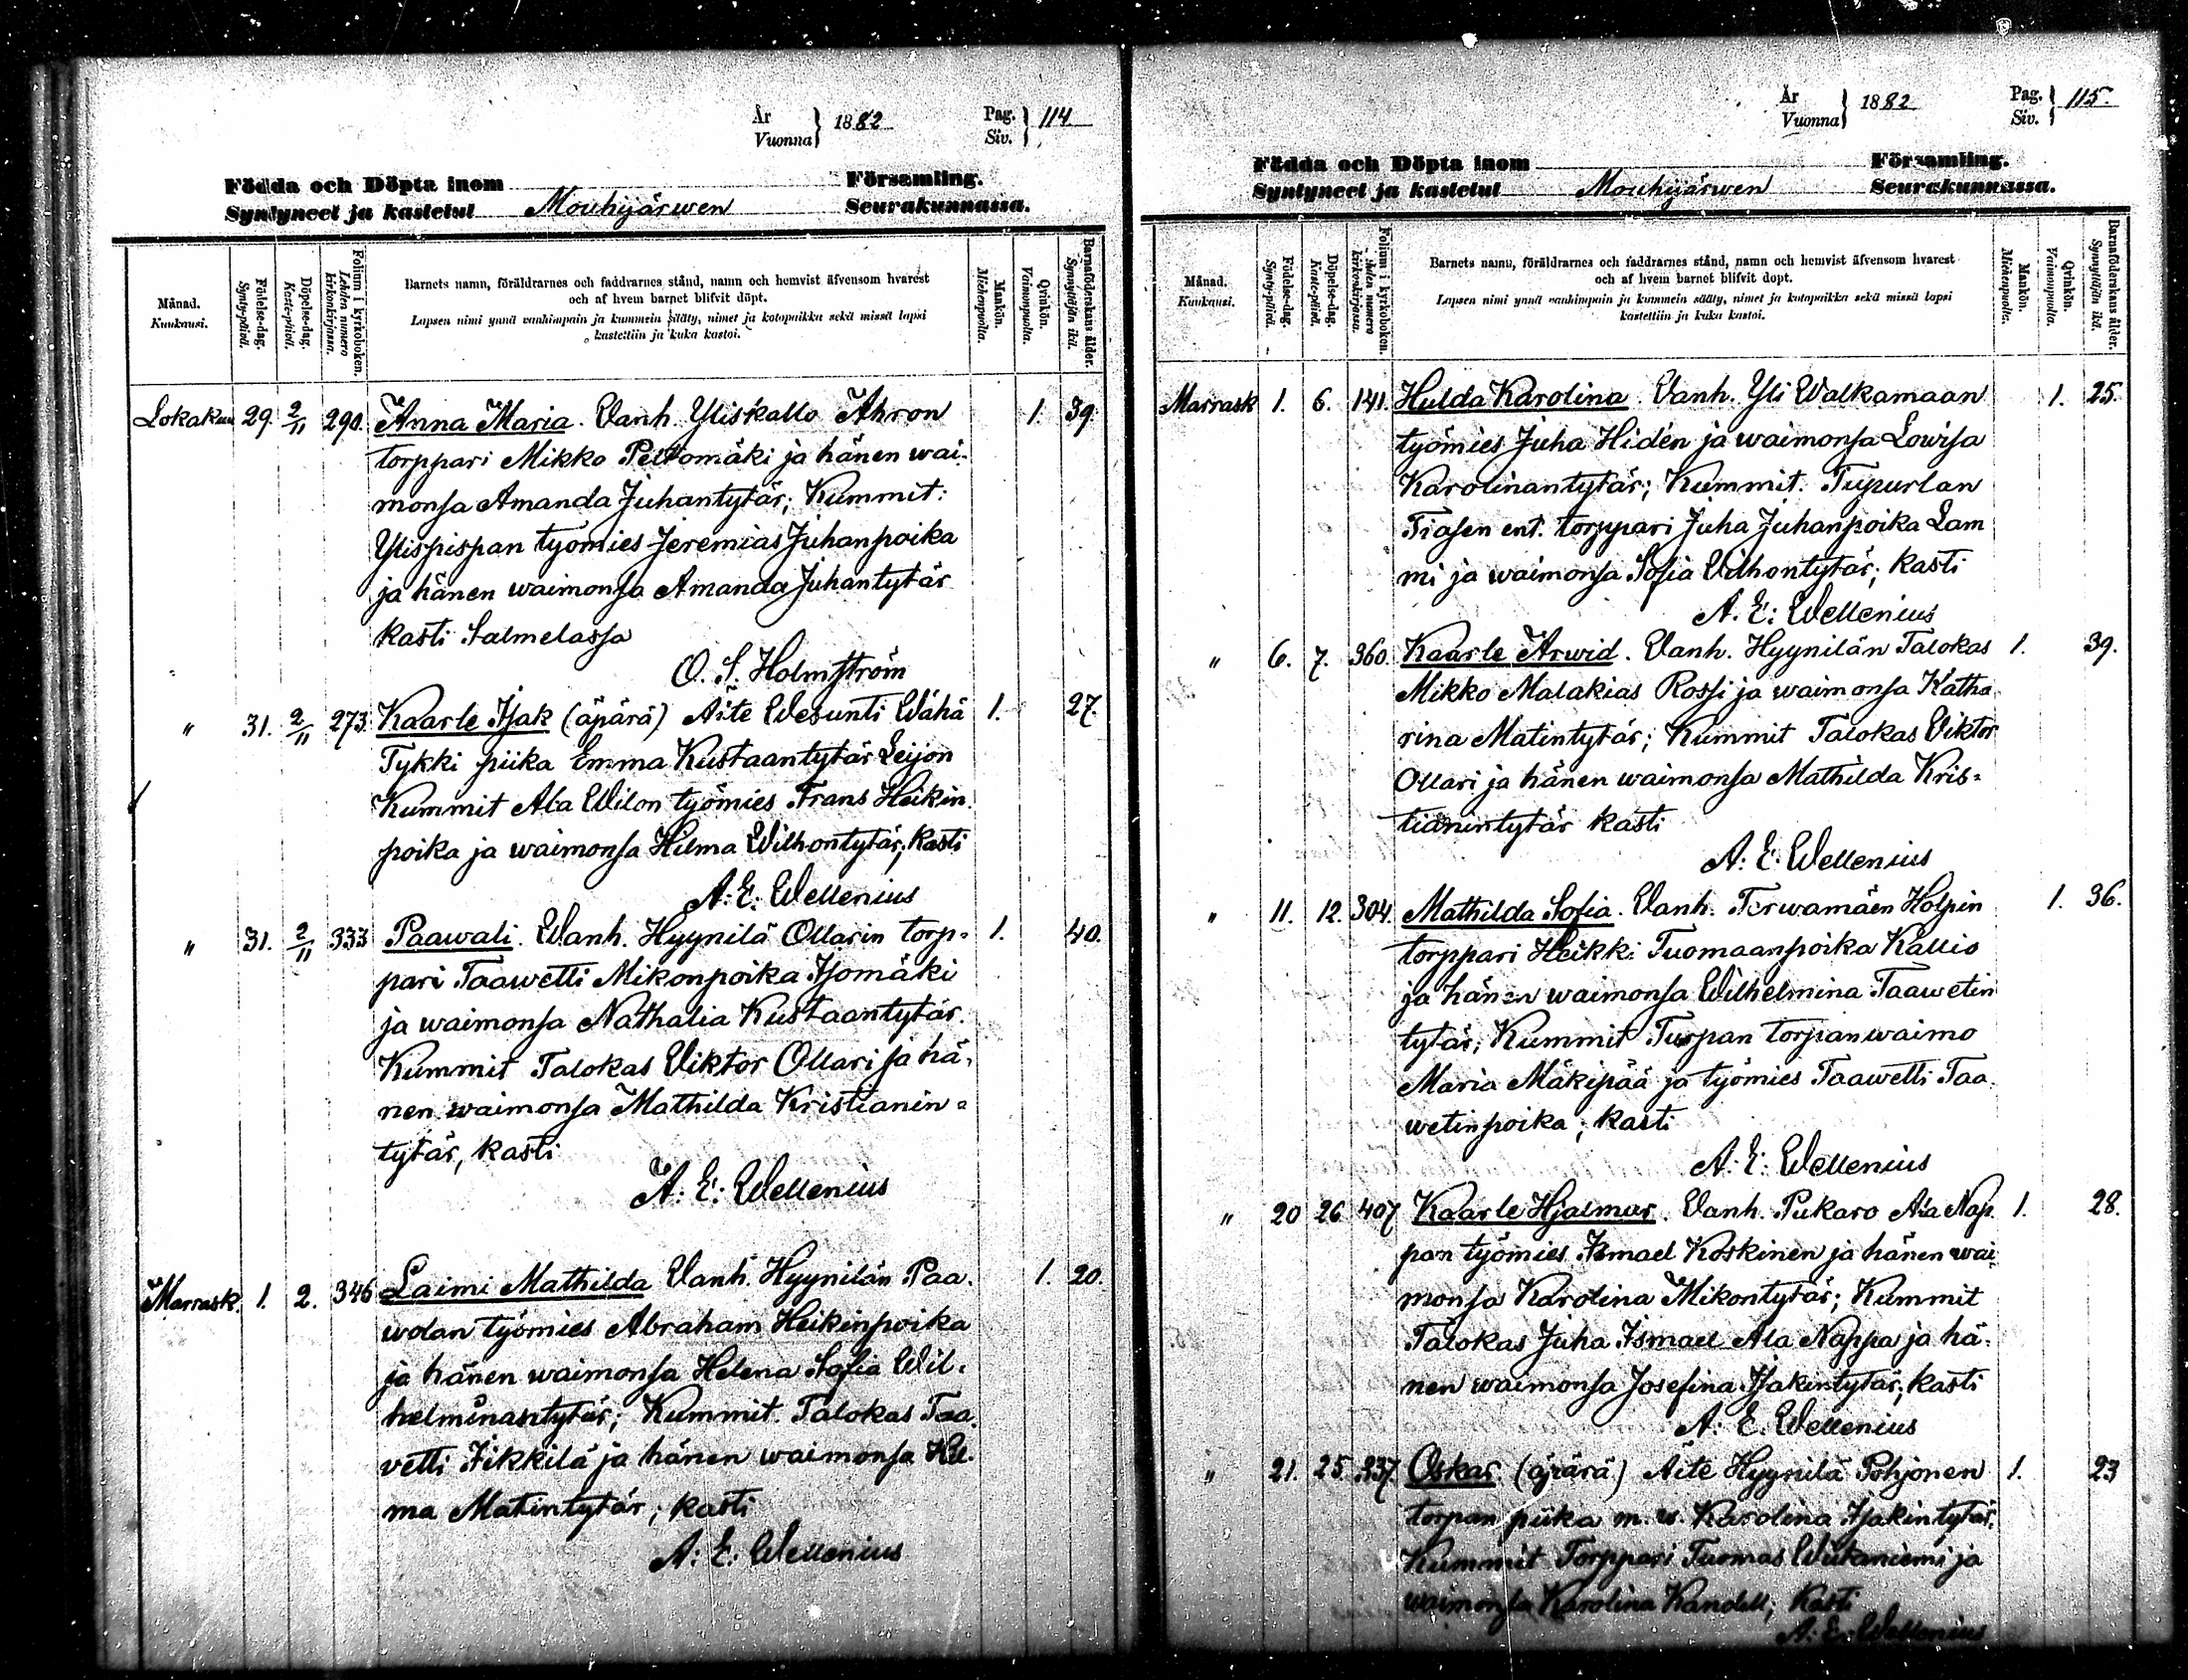 År
Vuonna } 1882
Pag.
Siv. } 114
Födda och Döpta inom Församling.
Syntyneet ja kastetut Mouhijärwen Seurakunnassa.
Månad.
Kuukausi.
Födelse-dag.
Synty-päivä.
Döpelse-dag.
Kaste-päivä.
Folium i kyrkoboken.
Lehden numero kirkonkirjassa.
Barnets namn, föräldrarnes och faddrarnes stånd, namn och hemvist äfvensom hvarest
och af hvem barnet blifvit döpt.
Lapsen nimi ynnä vanhimpain ja kummein sääty, nimet ja kotopaikka sekä missä lapsi
kastettiin ja kuka kastoi.
Mankön.
Miehenpuolta.
Qvinkön.
Vaimonpuolta.
Barnaföderskans ålder.
Synnyttäjän ikä.
Lokakuu 29. 2/11 290. Anna Maria. Vanh. Yliskallo Ahron 1. 39.
torppari Mikko Peltomäki ja hänen wai-
monsa Amanda Juhantytär; Kummit:
Ylispispan työmies Jeremias Juhanpoika
ja hänen waimonsa Amanda Juhantytär
kasti Salmelassa
O. S. Holmström
" 31. 2/11 273. Kaarle Isak (äpärä) Äite Wesunti Wähä 1. 27.
Tykki piika Emma Kustaantytär Leijon
Kummit Ala Wilon työmies Frans Heikin
poika ja waimonsa Hilma Wilhontytär; kasti
A: E: Wellenius
" 31. 2/11 333 Paawali. Wanh. Hyynilä Ollarin torp- 1. 40.
pari Taawetti Mikonpoika Isomäki
ja waimonsa Nathalia Kustaantytär.
Kummit Talokas Viktor Ollari ja hä-
nen waimonsa Mathilda Kristianin-
tytär, kasti
A: E: Wellenius
Marrask. 1. 2. 346 Laimi Mathilda Vanh. Hyynilän Paa- 1. 20.
wolan työmies Abraham Heikinpoika
ja hänen waimonsa Helena Sofia Wil-
helminantytär; Kummit. Talokas Taa-
vetti Iikkilä ja hänen waimonsa Hel-
ma Matintytär; kasti
A: E: Wellenius
År
Vuonna } 1882
Pag.
Siv. } 115.
Födda och Döpta inom Församling.
Syntyneet ja kastetut Mouhijärwen Seurakunnassa.
Månad.
Kuukausi.
Födelse-dag.
Synty-päivä.
Döpelse-dag.
Kaste-päivä.
Folium i kyrkoboken.
Lehden numero kirkonkirjassa.
Barnets namn, föräldrarnes och faddrarnes stånd, namn och hemvist äfvensom hvarest
och af hvem barnet blifvit döpt.
Lapsen nimi ynnä vanhimpain ja kummein sääty, nimet ja kotopaikka sekä missä lapsi
kastettiin ja kuka kastoi.
Mankön.
Miehenpuolta.
Qvinkön.
Vaimonpuolta.
Barnaföderskans ålder.
Synnyttäjän ikä.
Marrask 1. 6. 141. Hulda Karolina. Vanh. Yli Walkamaan 1. 25.
työmies Juha Hidén ja waimonsa Lowisa
Karolinantytär; Kummit. Tupurlan
ent. torppari Juha Juhanpoika Lam
mi ja waimonsa Sofia Vilhontytär; kasti
A. E: Wellenius
" 6. 7. 360. Kaarle Arwid. Vanh. Hyynilän Talokas 1. 39.
Mikko Malakias Rossi ja waimonsa Katha
rina Matintytär; Kummit Talokas Viktor
Ollari ja hänen waimonsa Mathilda Kris-
tianintytär kasti
A: E. Wellenius
" 11. 12. 304. Mathilda Sofia. Vanh. Terwamäen Holpin 1. 36.
torppari Heikki Tuomaanpoika Kallio
ja hänen waimonsa Wilhelmina Taawetin
tytär; Kummit Turpan torpanwaimo
Maria Mäkipää ja työmies Taawetti Taa-
wetinpoika; kasti
A: E: Wellenius
" 20 26 407 Kaarle Hjalmar. Vanh. Pukaro Ala Nap- 1. 28.
pan työmies Ismael Koskinen ja hänen wai-
monsa Karolina Mikontytär; Kummit
Talokas Juha Ismael Ala Nappa ja hä-
nen waimonsa Josefina Isakintytär; kasti
A: E. Wellenius
" 21. 25. 337. Oskar. (äpärä) Äite Hyynilä Pohjonen 1. 23
torpan piika m. w. Karolina Isakintytär.
Kummit Torppari Tuomas Wiikaniemi ja
waimonsa Karolina Kandell; kasti
A: E: Wellenius